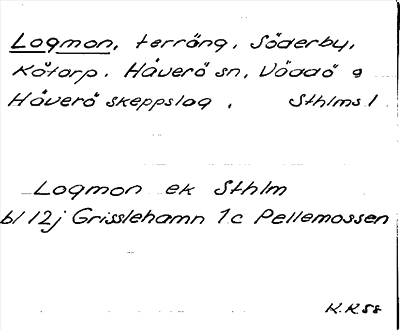 Logmon, terräng, Söderby,
Kötorp. Håverö sn, Väddö o
Håverö skeppslag, Sthlms l
Logmon ek Sthlm
bl 12j Grisslehamn 1c Pellemossen
K.K 58